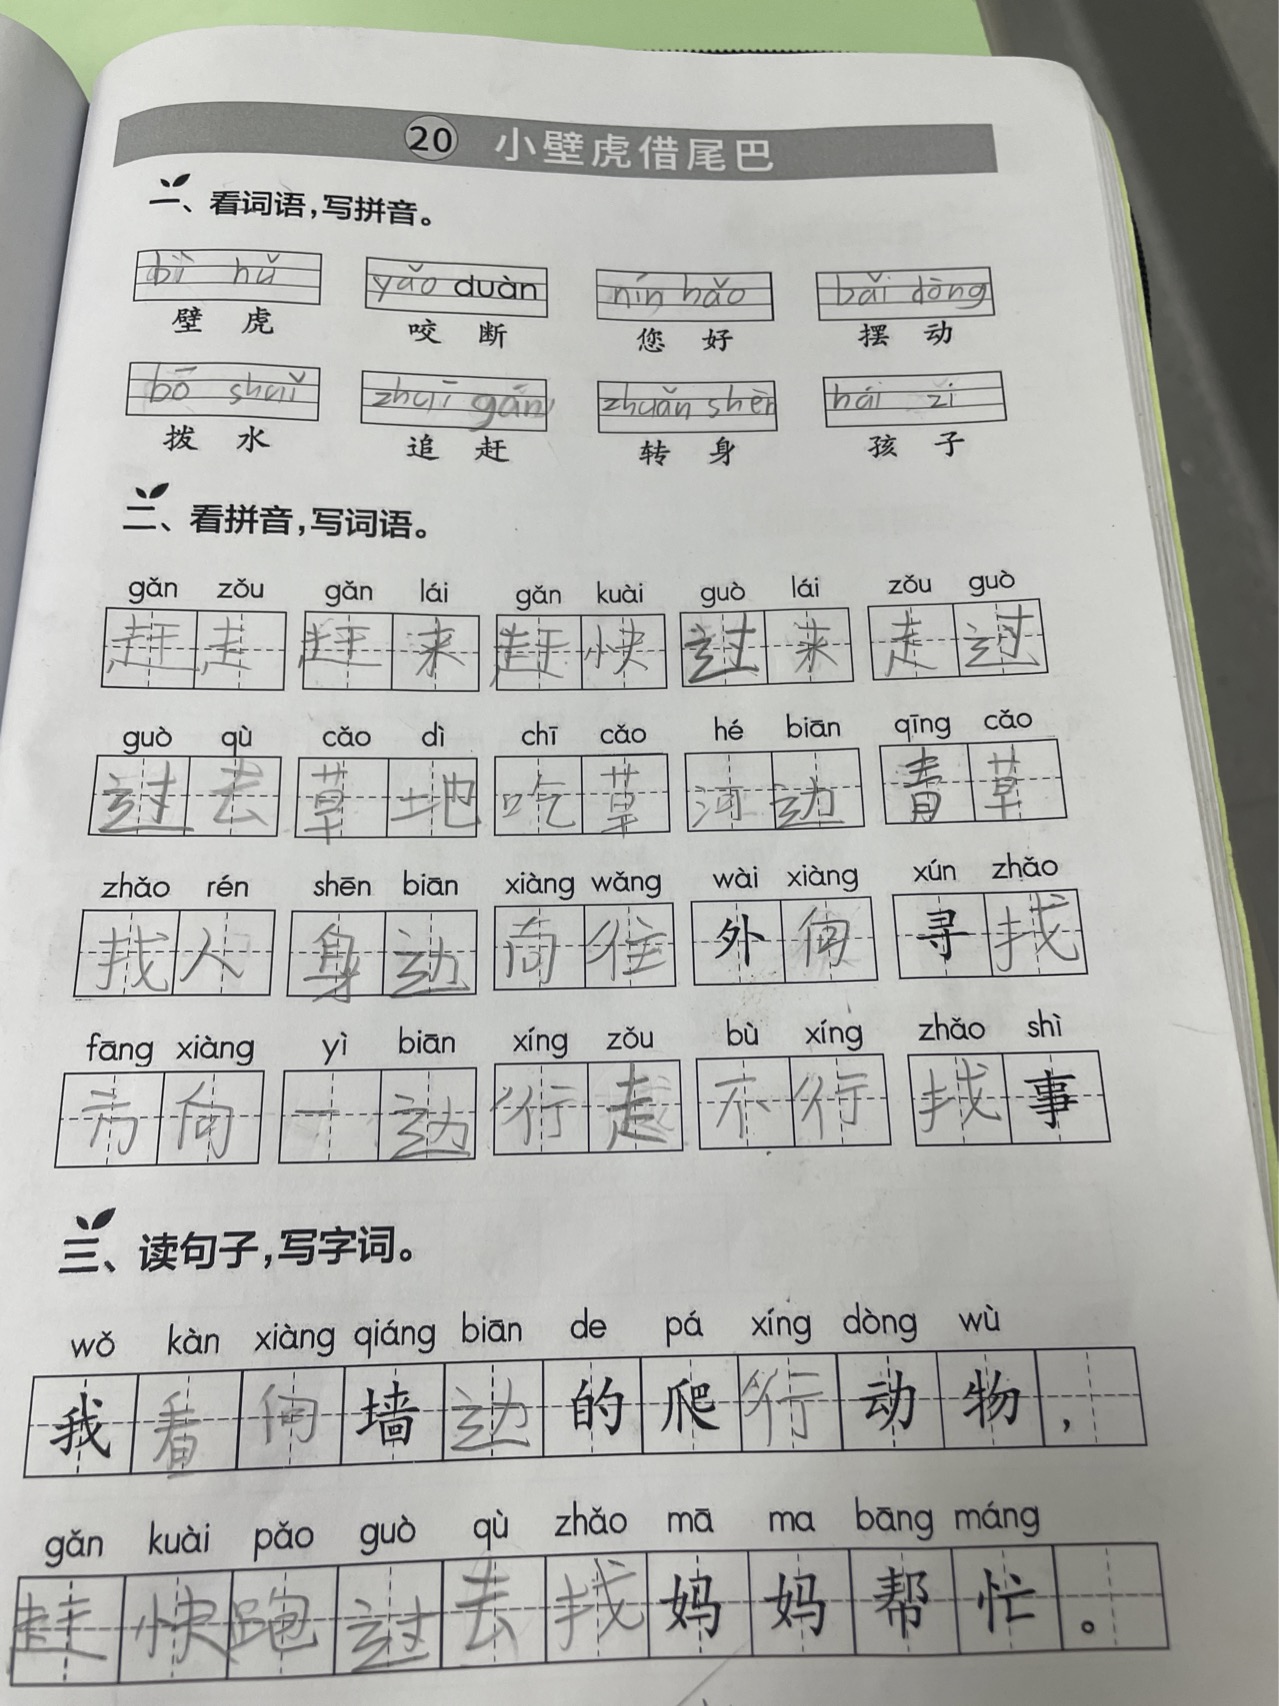 20 小壁虎借尾巴
一、看词语，写拼音。
bì hǔ yǎo duàn nín hǎo bǎi dòng
壁虎 咬断 您好 摆动
bō shuǐ zhuī gǎn zhuǎn shēn hái zi
拨水 追赶 转身 孩子
二、看拼音，写词语。
gǎn zǒu gǎn lái gǎn kuài guò lái zǒu guò
赶走 赶来 赶快 过来 走过
guò qù cǎo dì chī cǎo hé biān qīng cǎo
过去 草地 吃草 河边 青草
zhǎo rén shēn biān xiàng wǎng wài xiàng xún zhǎo
找人 身边 向往 外向 寻找
fāng xiàng yì biān xíng zǒu bù xíng zhǎo shì
方向 一边 行走 不行 找事
三、读句子，写字词。
wǒ kàn xiàng qiáng biān de pá xíng dòng wù
我看向墙边的爬行动物，
gǎn kuài pǎo guò qù zhǎo mā ma bāng máng
赶快跑过去找妈妈帮忙。